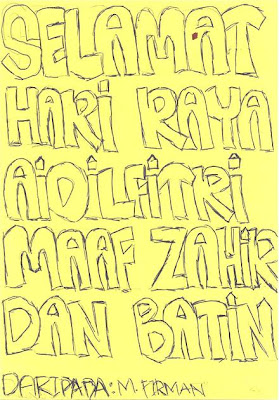 SELAMAT
HARI RAYA
AiDiLFiTRi
MAAF ZAHiR
DAN BATiN
DARIPADA: M. FIRMAN